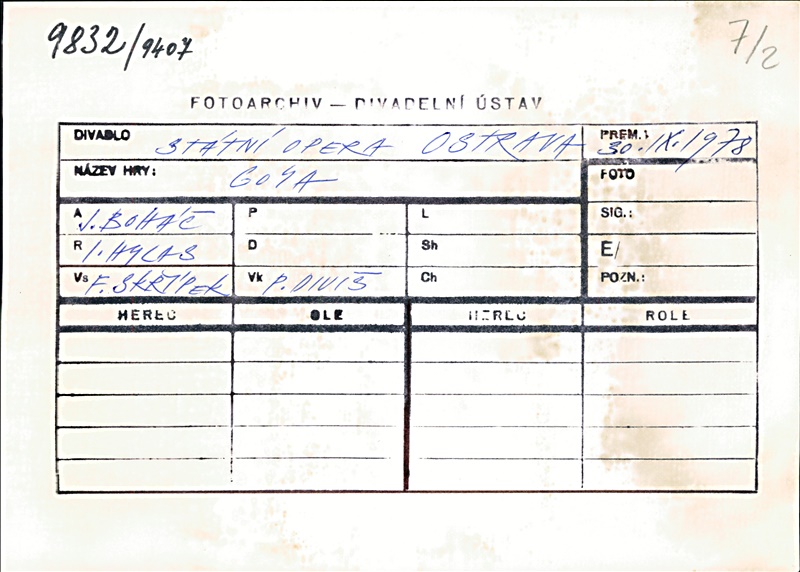 9832/9407
7/2
FOTOARCHIV — DIVADELNÍ ÚSTAV
DIVADLO STÁTNÍ OPERA OSTRAVA PREM.: 30.IX.1978
NÁZEV HRY: GOYA FOTO
A J. BOHÁČ P L SIG.:
R I. HYLAS D Sh E/
Vs F. SKŘÍPEK Vk P. DIVIŠ Ch POZN.:
HEREC OLE HEREC ROLE